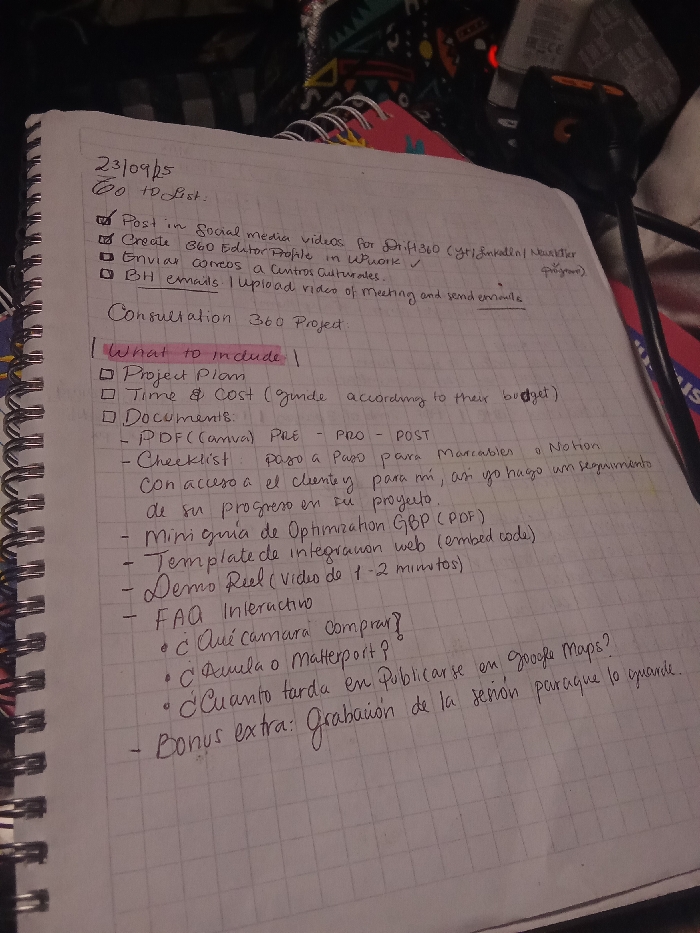 23/09/25
To to List:
Post in Social media videos for Drift360 (yt/linkedln/Newsletter
program)
Create 360 Editor Profile in UPwork ✓
Enviar correos a Centros Culturales.
BH emails. / Upload video of meeting and send emails
Consultation 360 Project
| What to include |
Project Plan
Time & Cost (guide according to their budget)
Documents:
- PDF (Canva) PRE - PRO - POST
- Checklist paso a paso para Marcables o Notion
con acceso a el cliente y para mi, asi yo hago un seguimiento
de su progreso en su proyecto.
- Mini guía de Optimization GBP (PDF)
- Template de integracion web (embed code)
- Demo Reel (video de 1-2 minutos)
- FAQ Interactivo
• ¿Qué camara comprar?
• ¿ o Matterport?
• ¿Cuanto tarda en Publicarse en google Maps?
- Bonus extra: Grabación de la sesión para que lo guarde.